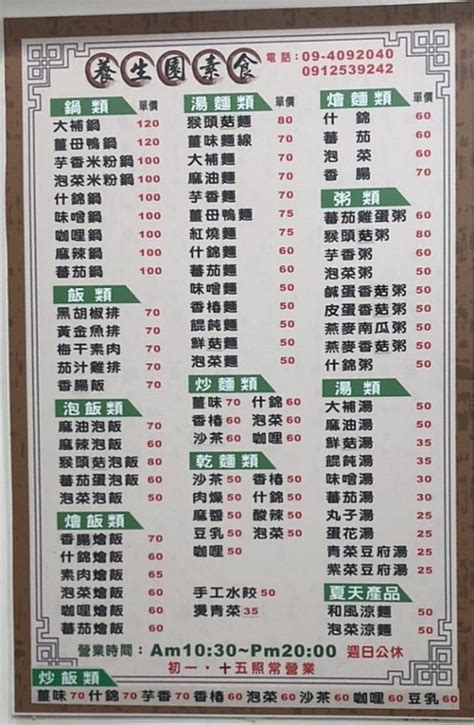 養生園素食
電話：09-4092040
0912539242
鍋類 單價
大補鍋 120
薑母鴨鍋 120
芋香米粉鍋 100
泡菜米粉鍋 100
什錦鍋 100
味噌鍋 100
咖哩鍋 100
麻辣鍋 100
蕃茄鍋 100
飯類
黑胡椒排 70
黃金魚排 70
梅干素肉 70
茄汁雞排 70
香腸飯 70
泡飯類
麻油泡飯 70
麻辣泡飯 60
猴頭菇泡飯 80
蕃茄蛋泡飯 60
泡菜泡飯 50
燴飯類
香腸燴飯 70
什錦燴飯 60
素肉燴飯 65
泡菜燴飯 60
咖哩燴飯 60
蕃茄燴飯 60
湯麵類 單價
猴頭菇麵 80
薑味麵線 70
大補麵 70
麻油麵 70
芋香麵 70
薑母鴨麵 75
紅燒麵 75
什錦麵 60
蕃茄麵 60
味噌麵 50
香椿麵 50
餛飩麵 50
鮮菇麵 50
泡菜麵 50
炒麵類
薑味 70 什錦 60
香椿 60 泡菜 50
沙茶 60 咖哩 60
乾麵類
沙茶 50 香椿 50
肉燥 50 什錦 50
麻醬 50 酸辣 50
豆乳 50 泡菜 50
咖哩 50
手工水餃 50
燙青菜 35
燴麵類 單價
什錦 60
蕃茄 60
泡菜 60
香腸 60
粥類
蕃茄雞蛋粥 60
猴頭菇粥 80
芋香粥 60
泡菜粥 50
鹹蛋香菇粥 60
皮蛋香菇粥 60
燕麥南瓜粥 60
燕麥香菇粥 60
什錦粥 60
湯類
大補湯 50
麻油湯 50
鮮菇湯 35
餛飩湯 35
味噌湯 30
蕃茄湯 30
丸子湯 25
蛋花湯 25
青菜豆府湯 25
紫菜豆府湯 25
夏天產品
和風涼麵 50
泡菜涼麵 50
營業時間：Am10:30~Pm20:00 週日公休
初一．十五照常營業
炒飯類
薑味 70 什錦 70 芋香 70 香椿 60 泡菜 50 沙茶 60 咖哩 60 豆乳 60